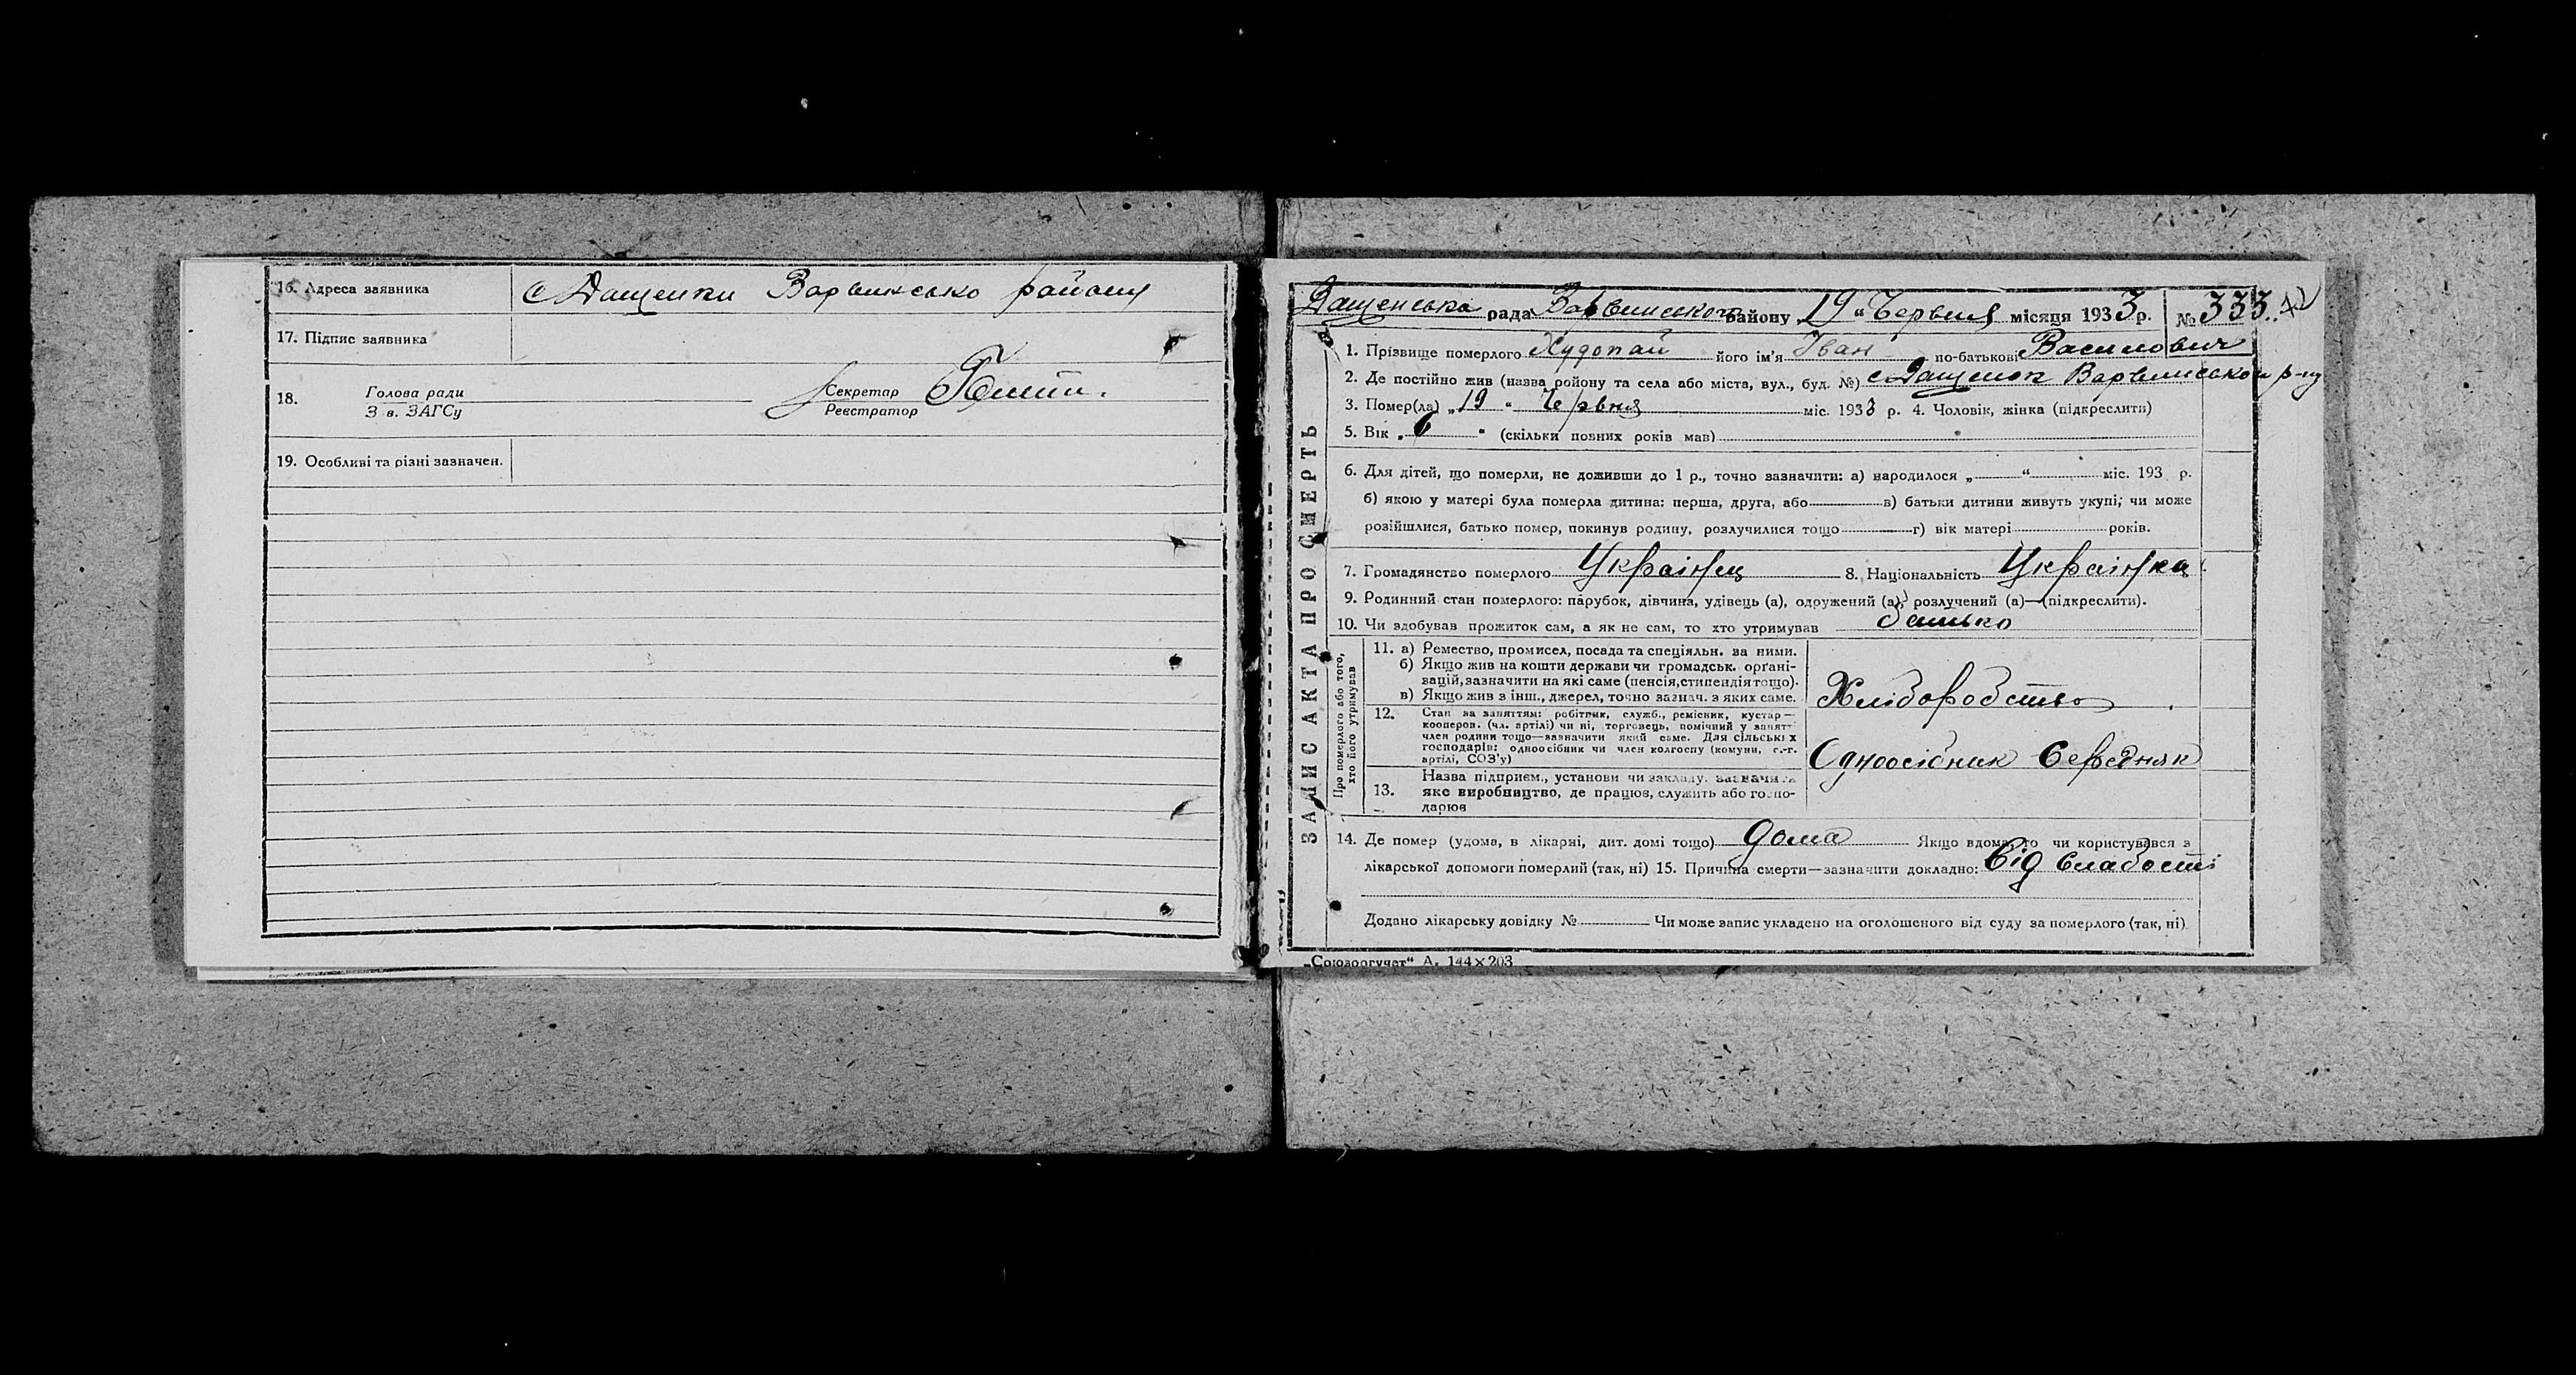 16. Адреса заявника с Дащенки Варвинсько району
17. Підпис заявника
18. Голова ради Секретар
З в. ЗАГСу Реєстратор
19. Особливі та різні зазначен.
Дащенська рада Варвинського району „19“ Червня місяця 1933 р. № 333.
ЗАПИС АКТА ПРО СМЕРТЬ
1. Прізвище померлого Худопай його ім'я Іван по-батькові Василович
2. Де постійно жив (назва району та села або міста, вул., буд. №) с Дащенок Варвинсько р-ну
3. Помер(ла) „19“ Червня міс. 1933 р. 4. Чоловік, жінка (підкреслити)
5. Вік „6“ (скільки повних років мав)
6. Для дітей, що померли, не доживши до 1 р., точно зазначити: а) народилося „ “ міс. 193 р.
б) якою у матері була померла дитина: перша, друга, або в) батьки дитини живуть укупі, чи може
розійшлися, батько помер, покинув родину, розлучилися тощо г) вік матері років.
7. Громадянство померлого Українец 8. Національність Українка
9. Родинний стан померлого: парубок, дівчина, удівець (а), одружений (а), розлучений (а)—(підкреслити).
10. Чи здобував прожиток сам, а як не сам, то хто утримував батько
Про померлого або того,
хто його утримував
11. а) Ремество, промисел, посада та спеціяльн. за ними.
б) Якщо жив на кошти держави чи громадськ. орґані-
зацій, зазначити на які саме (пенсія, стипендія тощо).
в) Якщо жив з інш., джерел, точно зазнач. з яких саме.
Хліборобство
12. Стан за заняттям: робітник, служб., ремісник, кустар—
кооперов. (чл. артілі) чи ні, торговець, помічний у занятт.
член родини тощо—зазначити який саме. Для сільських
господарів: одноосібник чи член колгоспу (комуни, с.-г.
артілі, СОЗ'у)
Одноосібник Середняк
13. Назва підприєм., установи чи закладу. зазначити
яке виробництво, де працюв, служить або госпо-
дарюв
14. Де помер (удома, в лікарні, дит. домі тощо) дома Якщо вдома, то чи користувався з
лікарської допомоги померлий (так, ні) 15. Причина смерти—зазначити докладно: Від слабості
Додано лікарську довідку № Чи може запис укладено на оголошеного від суду за померлого (так, ні)
„Союзоргучет“ А. 144×203